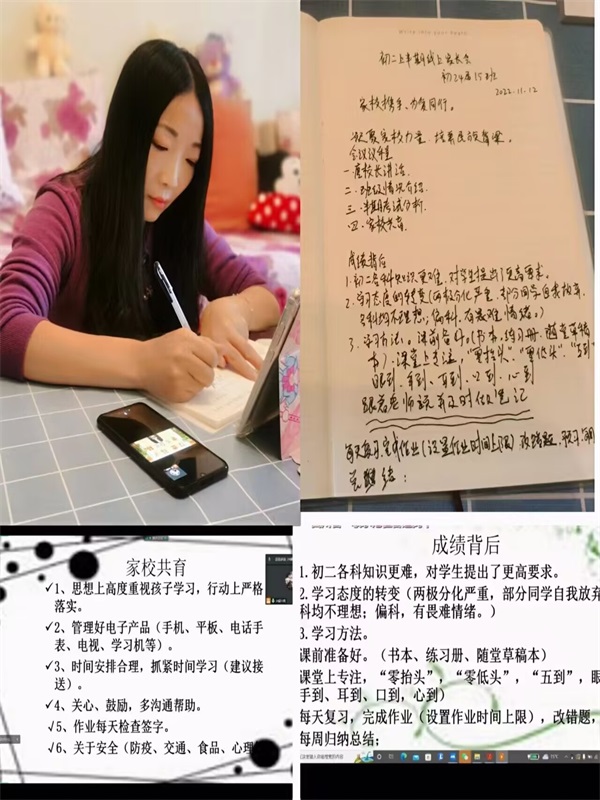 初二上半期线上家长会
初24届15班
2022.11.12
家校携手、力争同行。
凝聚家校力量 培养
会议议程
一.唐校长讲话.
二.班级情况介绍.
三.半期考试分析.
四.家校共育
成绩背后
1.初二各科知识更难,对学生提出了更高要求。
2.学习态度的转变(两极分化严重,部分同学自我放弃
各科均不理想;偏科,有畏难情绪。)
3.学习方法。课前准备好(书本、练习册、随堂草稿
本)课堂上专注,"零抬头"、"零低头"、"五到"
眼到、手到、耳到、口到、心到
跟着老师 并及时做笔记
每天复习,完成作业(设置作业时间上限)改错题,预习,每周
总结:
家校共育
✓1、思想上高度重视孩子学习,行动上严格
落实。
✓2、管理好电子产品(手机、平板、电话手
表、电视、学习机等)。
✓3、时间安排合理,抓紧时间学习(建议接
送)。
✓4、关心、鼓励,多沟通帮助。
√5、作业每天检查签字。
√6、关于安全(防疫、交通、食品、心理
成绩背后
1.初二各科知识更难,对学生提出了更高要求。
2.学习态度的转变(两极分化严重,部分同学自我放弃
科均不理想;偏科,有畏难情绪。)
3.学习方法。
课前准备好。(书本、练习册、随堂草稿本)
课堂上专注,“零抬头”、“零低头”,“五到”,眼
手到、耳到、口到,心到)
每天复习,完成作业(设置作业时间上限),改错题,
每周归纳总结;